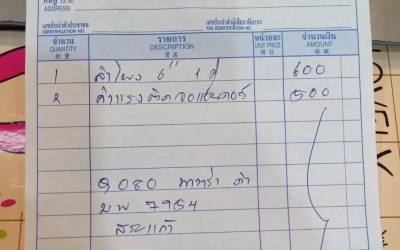 ที่อยู่
ADDRESS
เลขประจำตัวประชาชน
IDENTIFICATION NO.
เลขประจำตัวผู้เสียภาษีอากร
TAX IDENTIFICATION NO.
จำนวน รายการ หน่วยละ จำนวนเงิน
QUANTITY DESCRIPTION UNIT PRICE AMOUNT
1 ลำโพง 6" 1 คู่ 600
2 ค่าแรงติดจอแอนดอร์ 500
080
บพ 7954
สระแก้ว
LOVELY